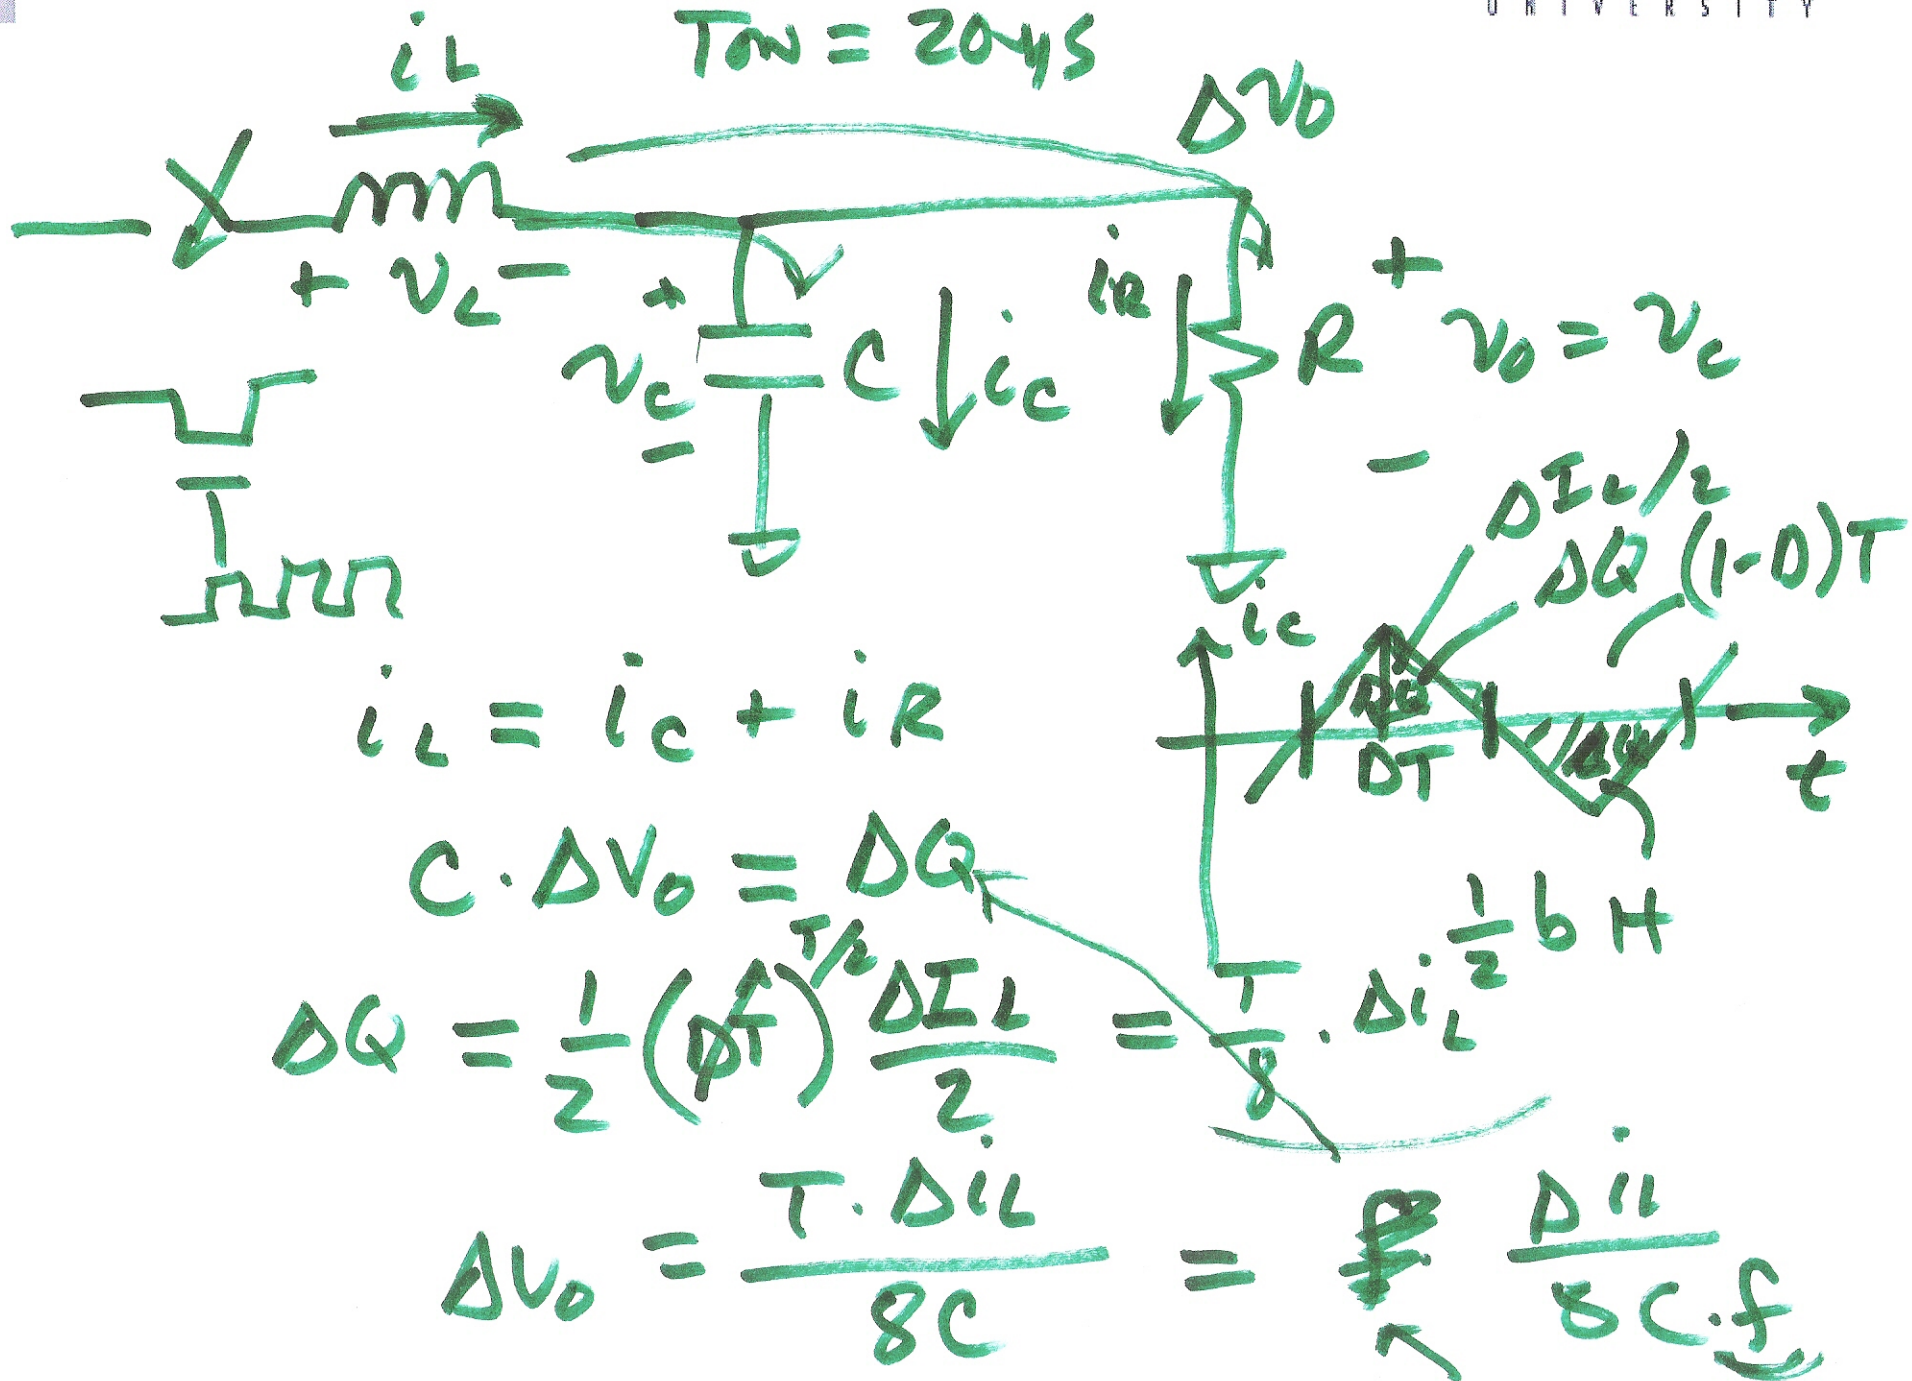 UNIVERSITY
iL TON = 20μs
ΔVO
+ VL -
+ VC - C iC
iR R + VO = VC -
ΔIL/2
ΔQ (1-D)T
iC
ΔQ ΔQ
DT t
iL = iC + iR
C·ΔVO = ΔQ
1/2 b H
ΔQ = 1/2 (DT) T/2 ΔIL/2 = T/8 · ΔiL
ΔVO = T·ΔiL/8C = ΔiL/8C·f